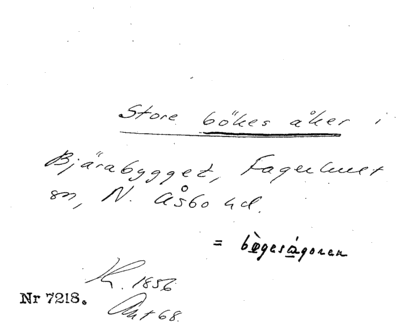 Store bökes åker i
Bjärabygget, Fagerhult
sn, N. Åsbo hd.
= bögesågoren
K. 1856
Nr 7218.
Akt 68.